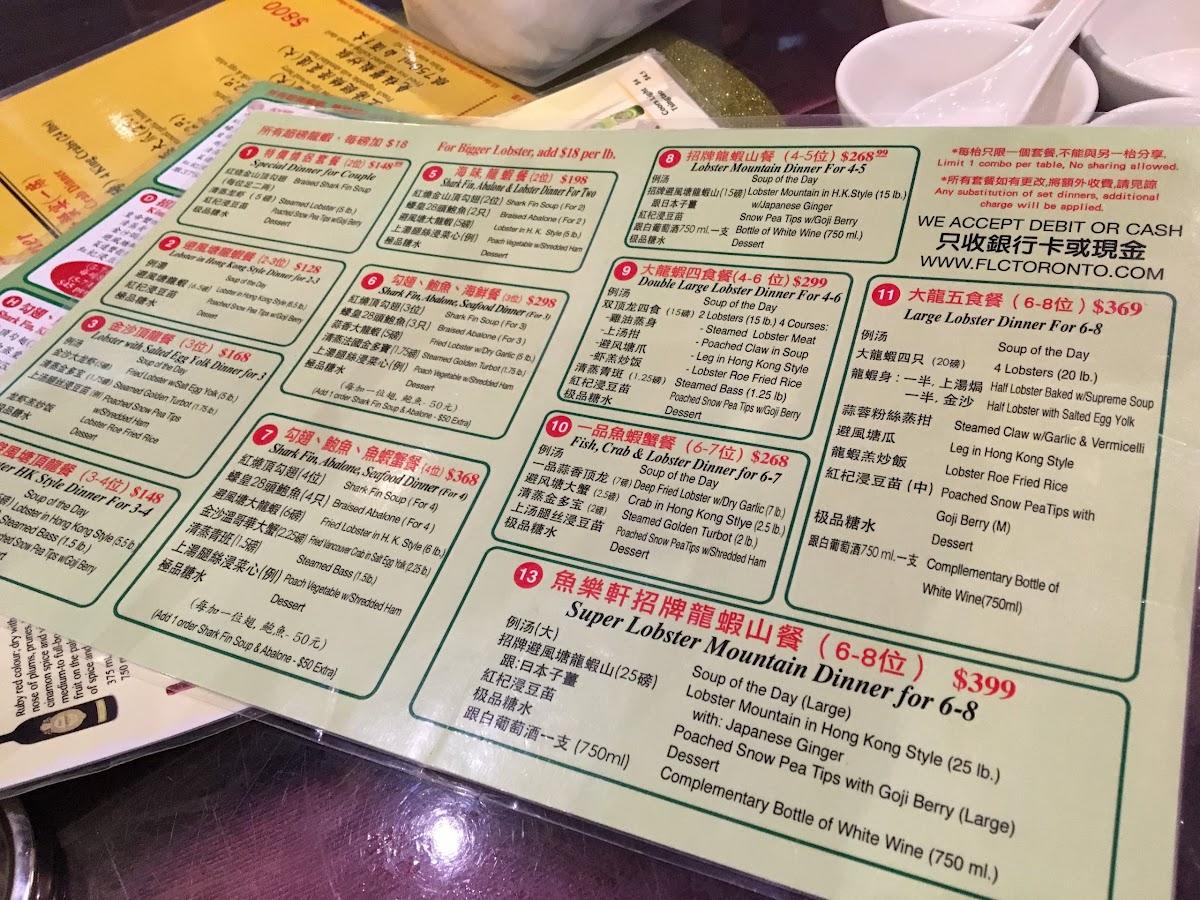 所有超磅龍蝦，每磅加 $18
For Bigger Lobster, add $18 per lb.
1 特價情侶套餐 (2位) $148
Special Dinner for Couple
紅燒金山頂勾翅 Braised Shark Fin Soup
(每位足二両)
Steamed Lobster (5 lb.)
Poached Snow Pea Tips w/Goji Berry
紅杞浸豆苗
極品糖水 Dessert
2 避風塘龍蝦餐 (2-3位) $128
Lobster in Hong Kong Style Dinner for 2-3
例湯 Soup of the Day
避風塘龍蝦 Lobster in Hong Kong Style
紅杞浸豆苗 Poached Snow Pea Tips w/Goji Berry
極品糖水 Dessert
3 金沙頂龍餐 (3位) $168
Lobster with Salted Egg Yolk Dinner for 3
Soup of the Day
Fried Lobster w/Salt Egg Yolk (5 lb.)
Steamed Golden Turbot (1.75 lb.)
Poached Snow Pea Tips
w/Shredded Ham
Lobster Roe Fried Rice
Dessert
風塘頂龍餐 (3-4位) $148
HK Style Dinner For 3-4
Soup of the Day
Lobster in Hong Kong Style (5.5 lb.)
Steamed Bass (1.5 lb.)
Snow Pea Tips w/Goji Berry
Dessert
5 海味龍蝦餐 (2位) $198
Shark Fin, Abalone & Lobster Dinner For Two
紅燒金山頂勾翅(2位) Shark Fin Soup ( For 2)
蠔皇28頭鮑魚(2只) Braised Abalone ( For 2 )
避風塘大龍蝦(5磅) Lobster in H. K. Style (5 lb.)
上湯腿絲浸菜心(例) Poach Vegetable w/Shredded Ham
極品糖水 Dessert
6 勾翅、鮑魚、海鮮餐 (3位) $298
Shark Fin, Abalone, Seafood Dinner (For 3)
紅燒頂勾翅(3位) Shark Fin Soup ( For 3)
蠔皇28頭鮑魚(3只) Braised Abalone ( For 3 )
蒜香大龍蝦(5磅) Fried Lobster w/Dry Garlic (5 lb.)
清蒸法國金多寶(1.75磅) Steamed Golden Turbot (1.75 lb.)
上湯腿絲浸菜心(例) Poach Vegetable w/Shredded Ham
極品糖水 Dessert
(每加一位翅, 鮑魚- 50元)
(Add 1 order Shark Fin Soup & Abalone - $50 Extra)
7 勾翅、鮑魚、魚蝦蟹餐 (4位) $368
Shark Fin, Abalone, Seafood Dinner (For 4)
紅燒頂勾翅(4位) Shark Fin Soup ( For 4)
蠔皇28頭鮑魚(4只) Braised Abalone ( For 4 )
避風塘大龍蝦(6磅) Fried Lobster in H. K. Style (6 lb.)
金沙溫哥華大蟹(2.25磅) Fried Vancouver Crab in Salt Egg Yolk (2.25 lb)
清蒸青斑(1.5磅) Steamed Bass (1.5lb.)
上湯腿絲浸菜心(例) Poach Vegetable w/Shredded Ham
極品糖水 Dessert
(每加一位翅, 鮑魚- 50元)
(Add 1 order Shark Fin Soup & Abalone - $50 Extra)
8 招牌龍蝦山餐 (4-5位) $268.99
Lobster Mountain Dinner For 4-5
例湯 Soup of the Day
招牌避風塘龍蝦山(15磅) Lobster Mountain in H.K.Style (15 lb.)
跟日本子薑 w/Japanese Ginger
紅杞浸豆苗 Snow Pea Tips w/Goji Berry
跟白葡萄酒750 ml.一支 Bottle of White Wine (750 ml.)
极品糖水 Dessert
9 大龍蝦四食餐(4-6 位) $299
Double Large Lobster Dinner For 4-6
例汤 Soup of the Day
双顶龙四食 (15磅) 2 Lobsters (15 lb.) 4 Courses:
-雞油蒸身 - Steamed Lobster Meat
-上汤拑 - Poached Claw in Soup
-避风塘爪 - Leg in Hong Kong Style
-虾羔炒饭 - Lobster Roe Fried Rice
清蒸青斑 (1.25磅) Steamed Bass (1.25 lb)
紅杞浸豆苗 Poached Snow Pea Tips w/Goji Berry
极品糖水 Dessert
10 一品魚蝦蟹餐 (6-7位) $268
Fish, Crab & Lobster Dinner for 6-7
例汤 Soup of the Day
一品蒜香顶龙 (7磅) Deep Fried Lobster w/Dry Garlic (7 lb.)
避风塘大蟹 (2.5磅) Crab in Hong Kong Stlye (2.5 lb.)
清蒸金多宝 (2磅) Steamed Golden Turbot (2 lb.)
上汤腿丝浸豆苗 Poached Snow PeaTips w/Shredded Ham
极品糖水 Dessert
*每枱只限一個套餐,不能與另一枱分享,
Limit 1 combo per table, No sharing allowed.
*所有套餐如有更改,將額外收費,請見諒
Any substitution of set dinners, additional
charge will be applied.
WE ACCEPT DEBIT OR CASH
只收銀行卡或現金
WWW.FLCTORONTO.COM
11 大龍五食餐 (6-8位) $369
Large Lobster Dinner For 6-8
例汤 Soup of the Day
大龍蝦四只 (20磅) 4 Lobsters (20 lb.)
龍蝦身：一半, 上湯焗 Half Lobster Baked w/Supreme Soup
一半, 金沙 Half Lobster with Salted Egg Yolk
蒜蓉粉絲蒸拑 Steamed Claw w/Garlic & Vermicelli
避風塘瓜 Leg in Hong Kong Style
龍蝦羔炒飯 Lobster Roe Fried Rice
紅杞浸豆苗 (中) Poached Snow PeaTips with
Goji Berry (M)
极品糖水 Dessert
跟白葡萄酒750 ml.一支 Compllementary Bottle of
White Wine(750ml)
13 魚樂軒招牌龍蝦山餐 (6-8位) $399
Super Lobster Mountain Dinner for 6-8
例汤(大) Soup of the Day (Large)
招牌避風塘龍蝦山(25磅) Lobster Mountain in Hong Kong Style (25 lb.)
跟:日本子薑 with: Japanese Ginger
紅杞浸豆苗 Poached Snow Pea Tips with Goji Berry (Large)
极品糖水 Dessert
跟白葡萄酒一支 (750ml) Complementary Bottle of White Wine (750 ml.)
$800
King Crab
Coors Light
Ruby red colour; dry with
nose of plums, prunes,
cinamon spice and
medium-to full-b
fruit on the pa
of spice and
375 m
750 m